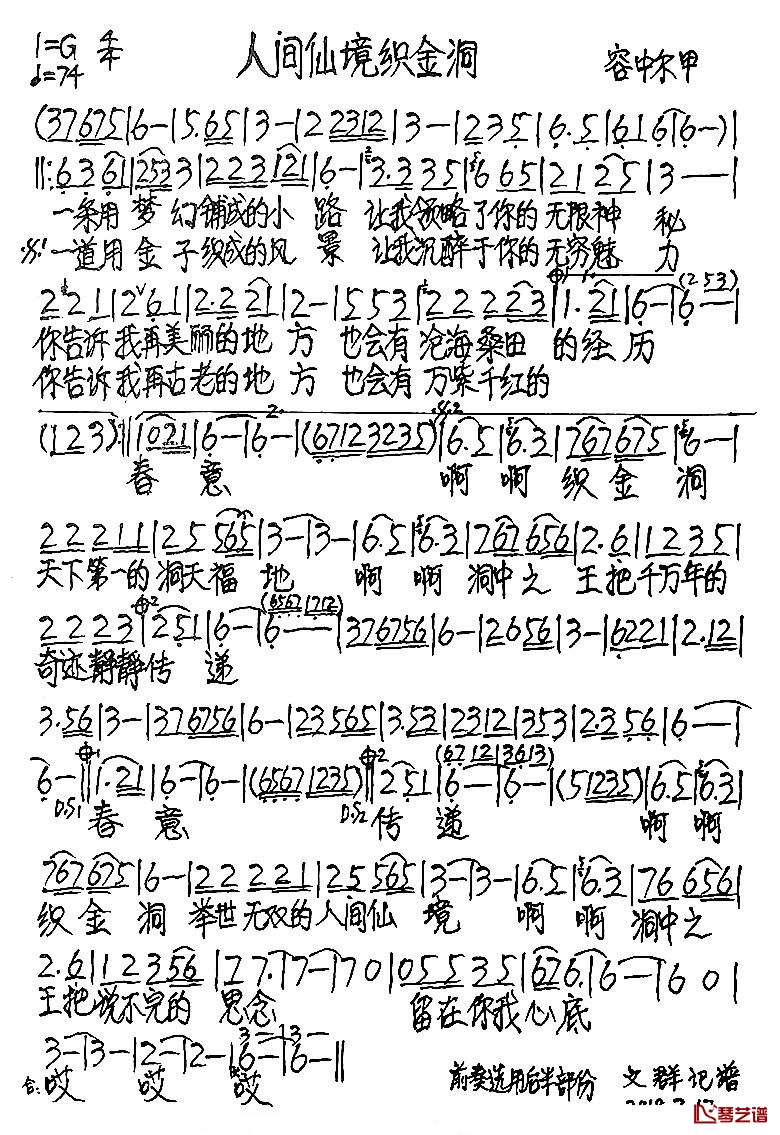 1=G 4/4
♩=74
人间仙境织金洞
容中尔甲
(37675|6-|5.65|3-|22312|3-|235|6.5|616|6-)|
‖:6361|2533|223121|6-|3.335|665|2125|3--|
一条用梦幻铺成的小路 让我领略了你的无限神秘
𝄋1 一道用金子织成的风景 让我沉醉于你的无穷魅力
(253)
221|261|2.221|2-|553|222223|1.21|6-|6--|
你告诉我再美丽的地方 也会有沧海桑田的经历
你告诉我再古老的地方 也会有万紫千红的
2. 𝄋2
(123):‖1021|6-|6-|(67123235)|6.5|6.3|767675|6-|
春意 啊啊织金洞
22211|25565|3-|3-|6.5|6.3|767656|2.6|1235|
天下第一的洞天福地 啊啊洞中之王把千万年的
(6567 1712)
2223|251|6-|6--|376756|6-|2656|3-|6221|2.12|
奇迹静静传递
3.56|3-|376756|6-|23565|3.53|2312|353|2.356|6--|
(6712|3613)
6-‖1.21|6-|6-|(65671235)‖251|6-|6-|(51235)|6.5|6.3|
D.S1 春意 D.S2 传递 啊啊
767675|6-|222221|25565|3-|3-|6.5|6.3|766561|
织金洞 举世无双的人间仙境 啊啊洞中之
2.6|12356|77.|7-|70|05535|676.|6-|60|
王把说不完的思念 留在你我心底
3-|3-
3-|3-|2-|2-|6-|6-‖
合:哎 哎 哎
前奏选用后半部份 文群记谱
琴艺谱